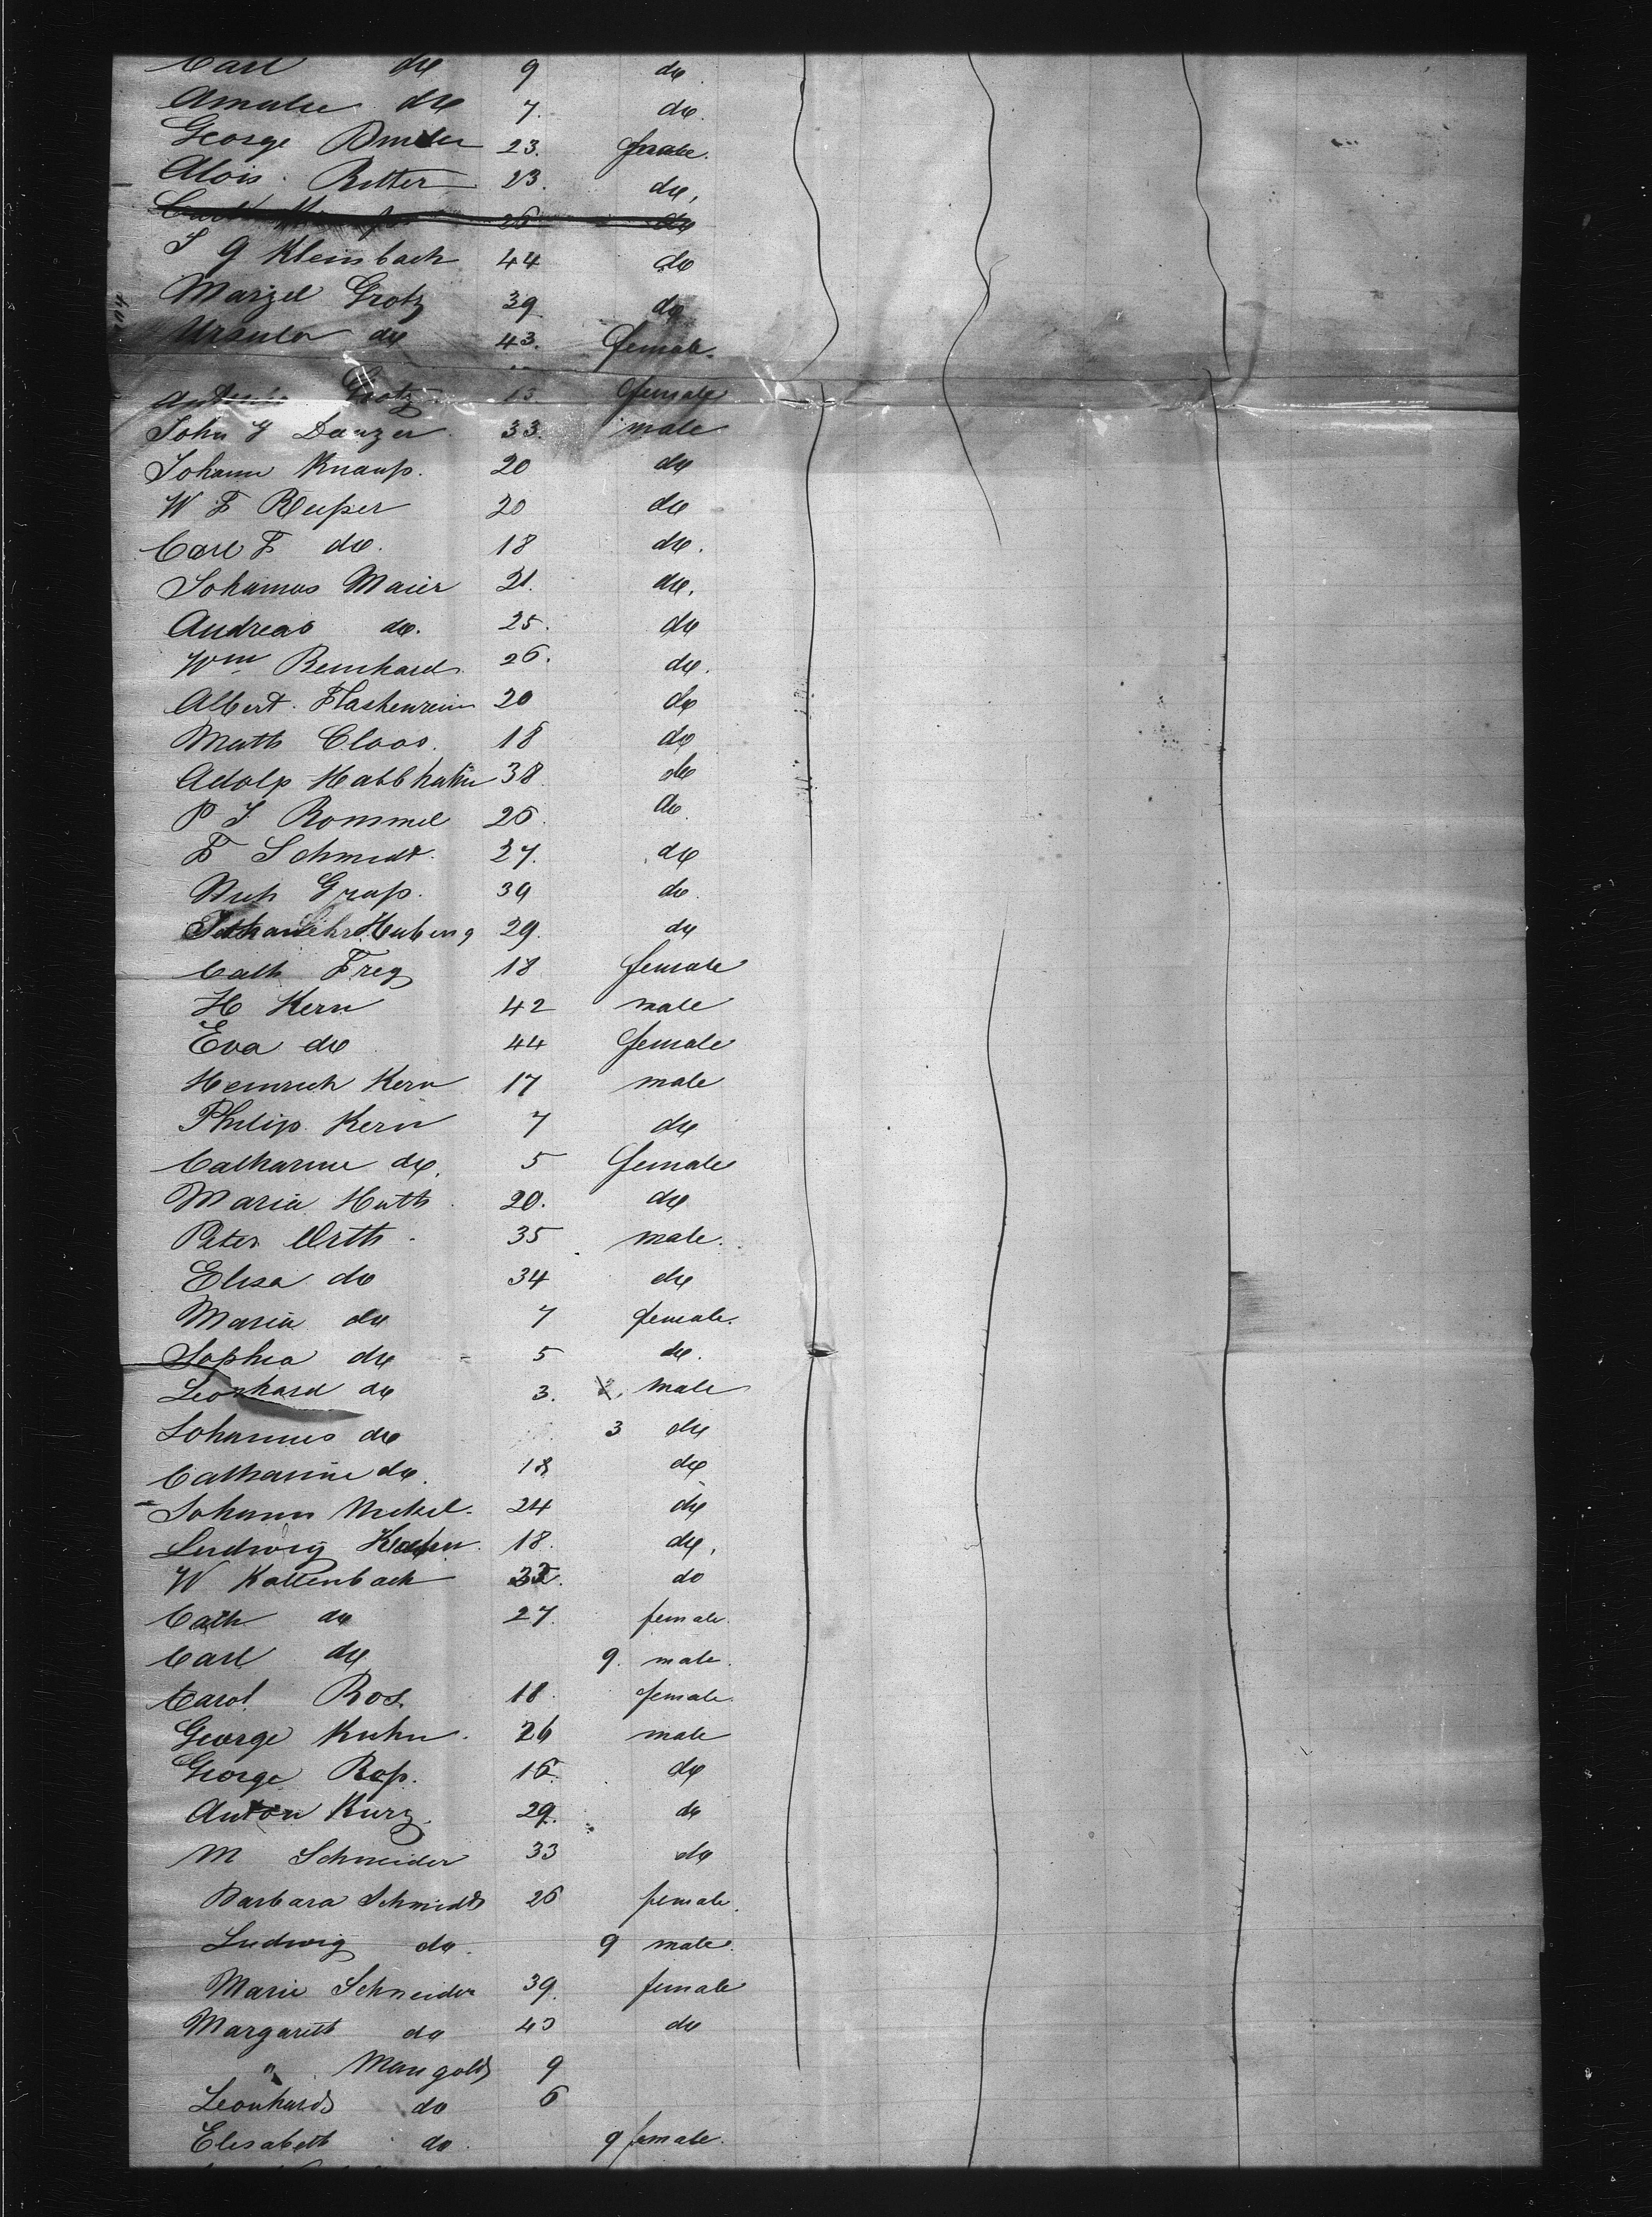 Carl do 9 do
Amalie do 7. do.
George 23. female.
Alois Ritter 23. do,
Carl 26 do
J G Kleinbach 44 do
Marzel Grotz 39 do
Ursula do 43. female.
Grotz 13 female
John G Danzer 33. male
Johann Knaup. 20 do
W F Reeper 20 do
Carl F do. 18 do.
Johannes Maier 21. do.
Andreas do. 25. do
Wm Reinhard 26. do.
Albert 20 do
Math Cloos. 18 do
Adolp 38 do
P J Rommel 26. do
F Schmidt. 27. do
39 do.
29. do
Cath Frey 18 female
H Kern 42 male
Eva do 44 female
Heinrich Kern 17 male
Philip Kern 7 do
Catharine do. 5 female
Maria Huth 20. do
Peter Orth 35 male.
Elisa do 34 do
Maria do 7 female.
Sophia do 5 do.
Leonhard do 3. male
Johannes do 3 do
Catharine do. 18 do
Johann Nickel. 24 do
Ludwig 18. do,
W Kaltenbach do
Cath do 27. female.
Carl do 9. male.
Carol Ros 18. female.
George Kuhn. 26 male
George Rop. 16. do
Anton Kurz. 29. do
M Schneider 33 do
Barbara Schmidt 26 female.
Ludwig do. 9 male.
Marie Schneider 39. female
Margareth do 43 do
" Mangold 9
Leonhard do 6
Elisabeth do. 9 female.